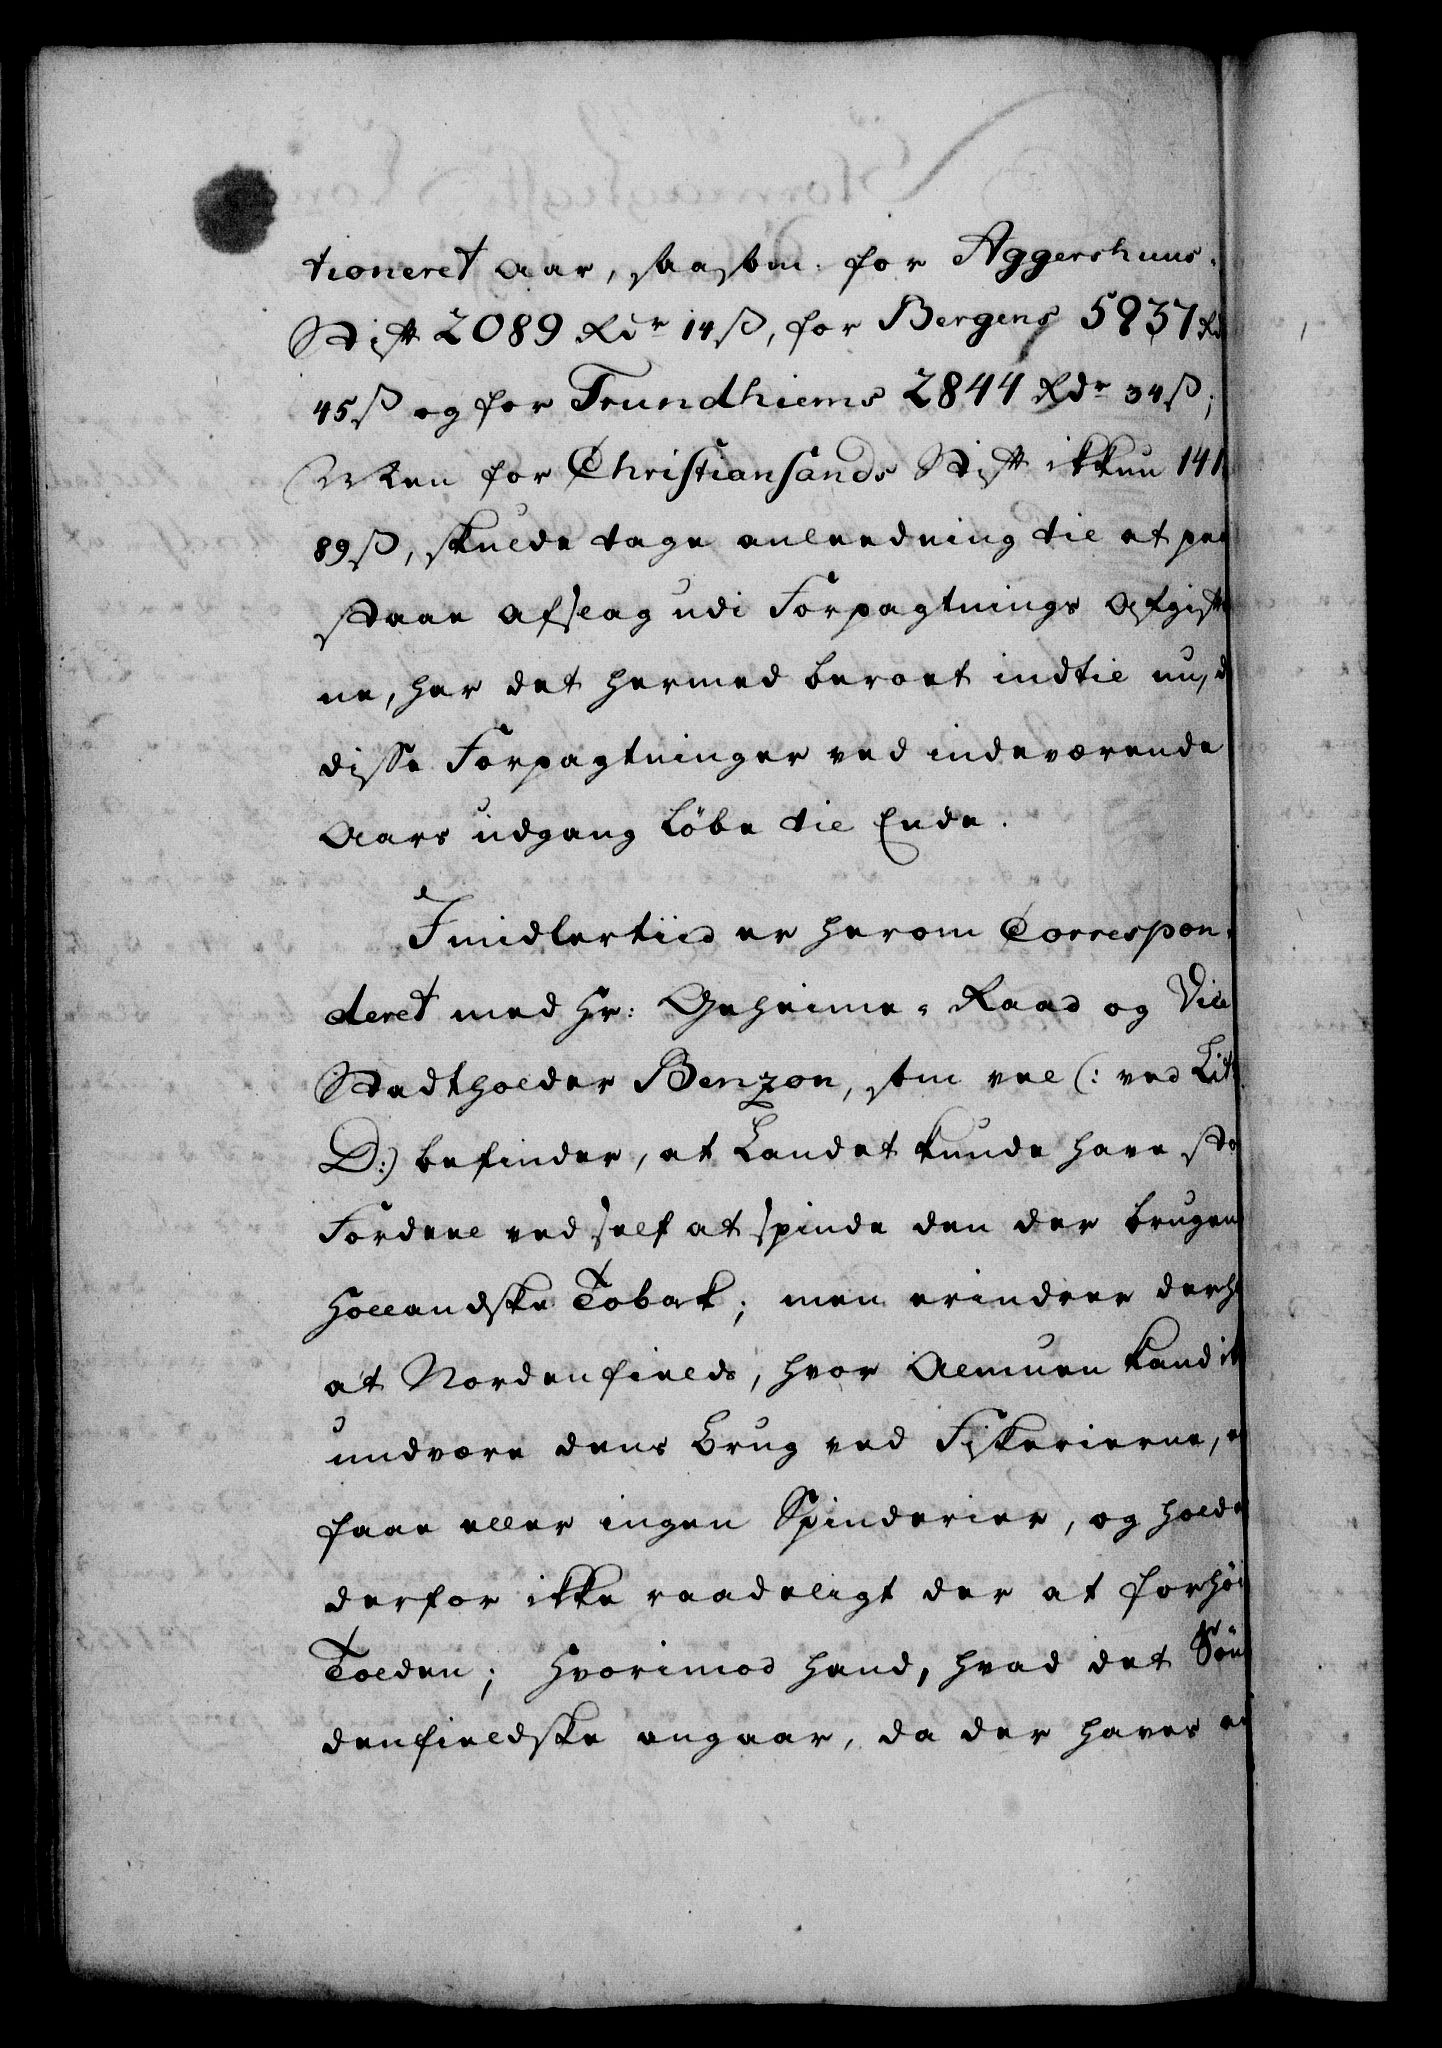 tioneret Aar, saasom for Aggershuus-
Stift 2089 Rdr 14 ß, for Bergens 5937 Rd
45 ß og for Trundhiems 2844 Rdr 34 ß;
Men for Christiansands Stift ikkun 141
89 ß, skulde tage anleedning til et paa
staae Afslag udi Forpagtnings Afgift
ne, har det hermed beroet indtil nu, d
disse Forpagtninger ved indeværende
Aars udgang løbe til Ende.
Imidlertiid er herom Correspon-
deret med Hr: Geheime-Raad og Vice
Stadtholder Benzon, som vel (: ved Lit
D:) befinder, at Landet kunde have sto
Fordeel ved self at spinde den der brugen
Hollandske Tobak; men erindrer derh
at Nordenfields, hvor Almuen kand ik
undvære dens Brug ved Fiskerierne, e
faae eller ingen Spinderier, og holde
derfor ikke raadeligt der at forhøi
Tolden; hvorimod hand, hvad det Søn
denfieldske angaar, da der haves